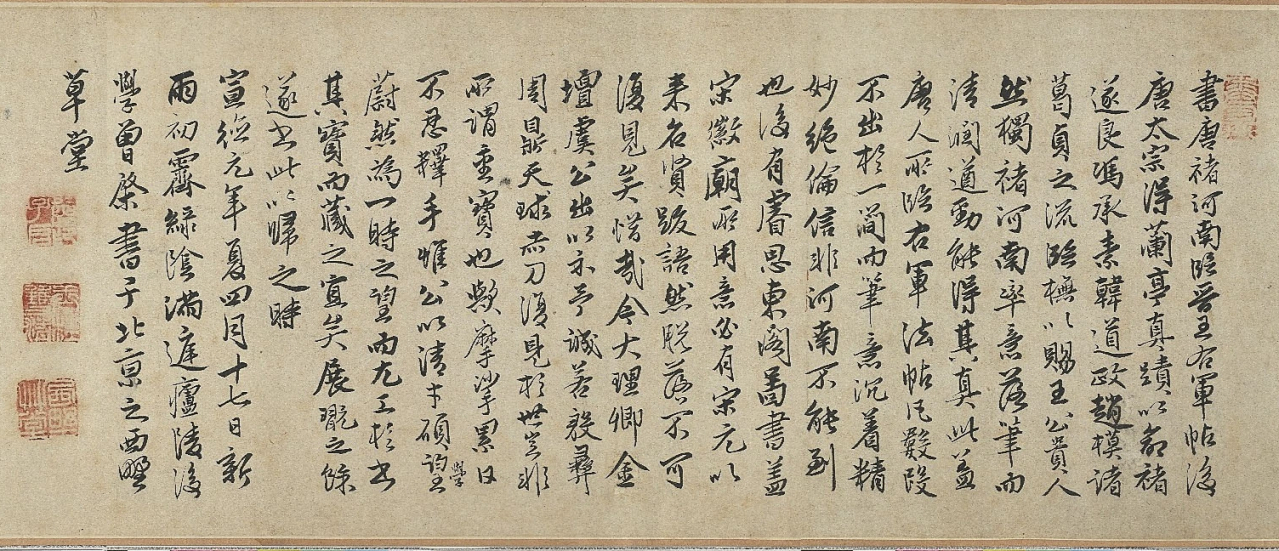 書唐褚河南臨晉王右軍帖後
唐太宗得蘭亭真蹟以命褚
遂良馮承素韓道政趙模諸
葛貞之流臨橅以賜王公貴人
然獨褚河南率意落筆而
清潤遒勁能得其真此蓋
唐人所臨右軍法帖凡數段
不出於一簡而筆意沉着精
妙絶倫信非河南不能到
也後有睿思東閣畵書蓋
宋徽廟所用意必有宋元以
来名賢跋語然脫落不可
復見矣惜哉今大理卿金
壇虞公出以示予誠若殷彝
周鼎天球赤刀復見於世豈非
所謂重寶也歟摩挲累日
不忍釋手惟公以清才碩學望
蔚然為一時之望而尤工於書
其寳而藏之宜矣展翫之餘
遂書此以歸之時
宣德元年夏四月十七日新
雨初霽緑陰滿庭廬陵後
學曾棨書于北京之西墅
草堂